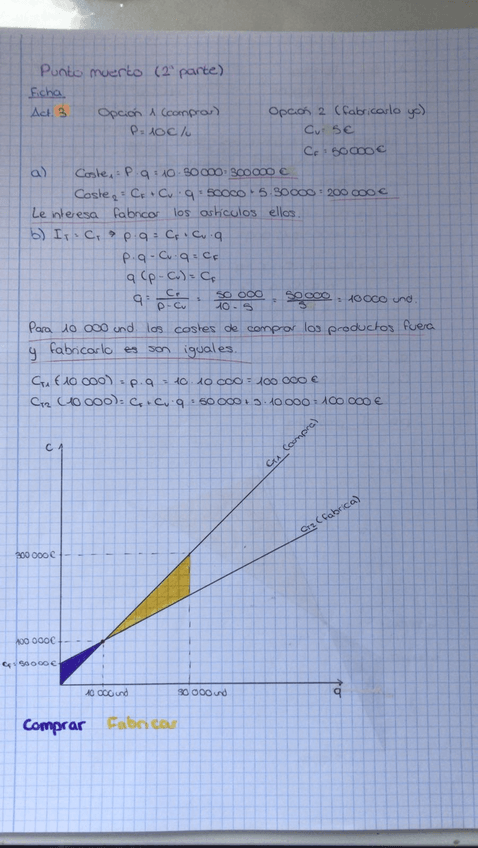 Punto muerto (2ª parte)
Ficha
Act. 3 Opción 1 (comprar) Opción 2 (fabricarlo yo)
P = 10€/u Cv = 5€
CF = 50000€
a) Coste1 = P · q = 10 · 30000 = 300000€
Coste2 = CF + Cv · q = 50000 + 5 · 30000 = 200 000€
Le interesa fabricar los artículos ellos.
b) IT = CT → p · q = CF + Cv · q
p · q - Cv · q = CF
q (p - Cv) = CF
q = CF / p - Cv = 50 000 / 10 - 5 = 50000 / 5 = 10000 und.
Para 10 000 und. los costes de comprar los productos fuera
y fabricarlo es son iguales.
CT1 (10 000) = p · q = 10 · 10 000 = 100 000€
CT2 (10 000) = CF + Cv · q = 50 000 + 5 · 10000 = 100 000€
C
CT1 (compra)
CT2 (fabrica)
300 000€
100 000€
CF = 50000€
10 000 und 30 000 und q
Comprar Fabricar